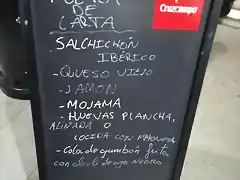 FUERA
DE
CARTA
Cruzcampo
SALCHICHÓN
IBÉRICO
-QUESO VIEJO
-JAMÓN
-MOJAMA
-HUEVAS PLANCHA,
ALIÑADA O
COCIDA CON MAHONESA
-Cola de gambón frita
con alioli de ajo negro